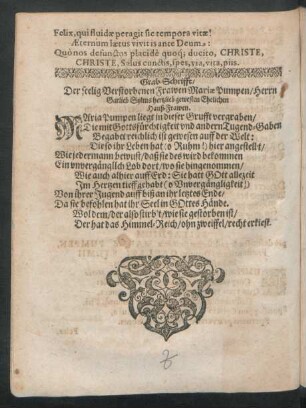 Felix, qui fluidæ peragit sic tempora vitæ!
Æternùm lætus vivit is ante Deum.
Quò nos defunctos placidè quoq; ducito, CHRISTE,
CHRISTE, Salus cunctis, spes, via, vita, piis.
Grab-Schrifft/
Der seelig Verstorbenen Frawen Maria Pumpen/ Herrn
hertzlieb gewesten Ehelichen
Hauß-Frawen.
MAria Pumpen liegt in dieser Grufft vergraben/
Die mit Gottösfürchtigkeit und andern Tugend-Gaben
Begabet reichlich ist gewesen auff der Welt:
Die so ihr Leben hat (o Ruhm!) hier angestellt/
Wie jedermann bewust/ daß sie dos wird bekommen
Ein unvergänglich Lob dort/ wo sie hingenommen/
Wie auch alhier auff Erd: Sie hatt GOtt allezeit
Im Hertzen tieff gehabt (o Unvergängligkeit!)
Von ihrer Jugend auff biß an ihr letztes Ende/
Da sie befohlen hat ihr Seel in GOttes Hände.
Wol dem/ der also stirb't/ wie sie gestorben ist/
Der hat das Himmel-Reich/ ohn zweiffel/ recht erkiest.